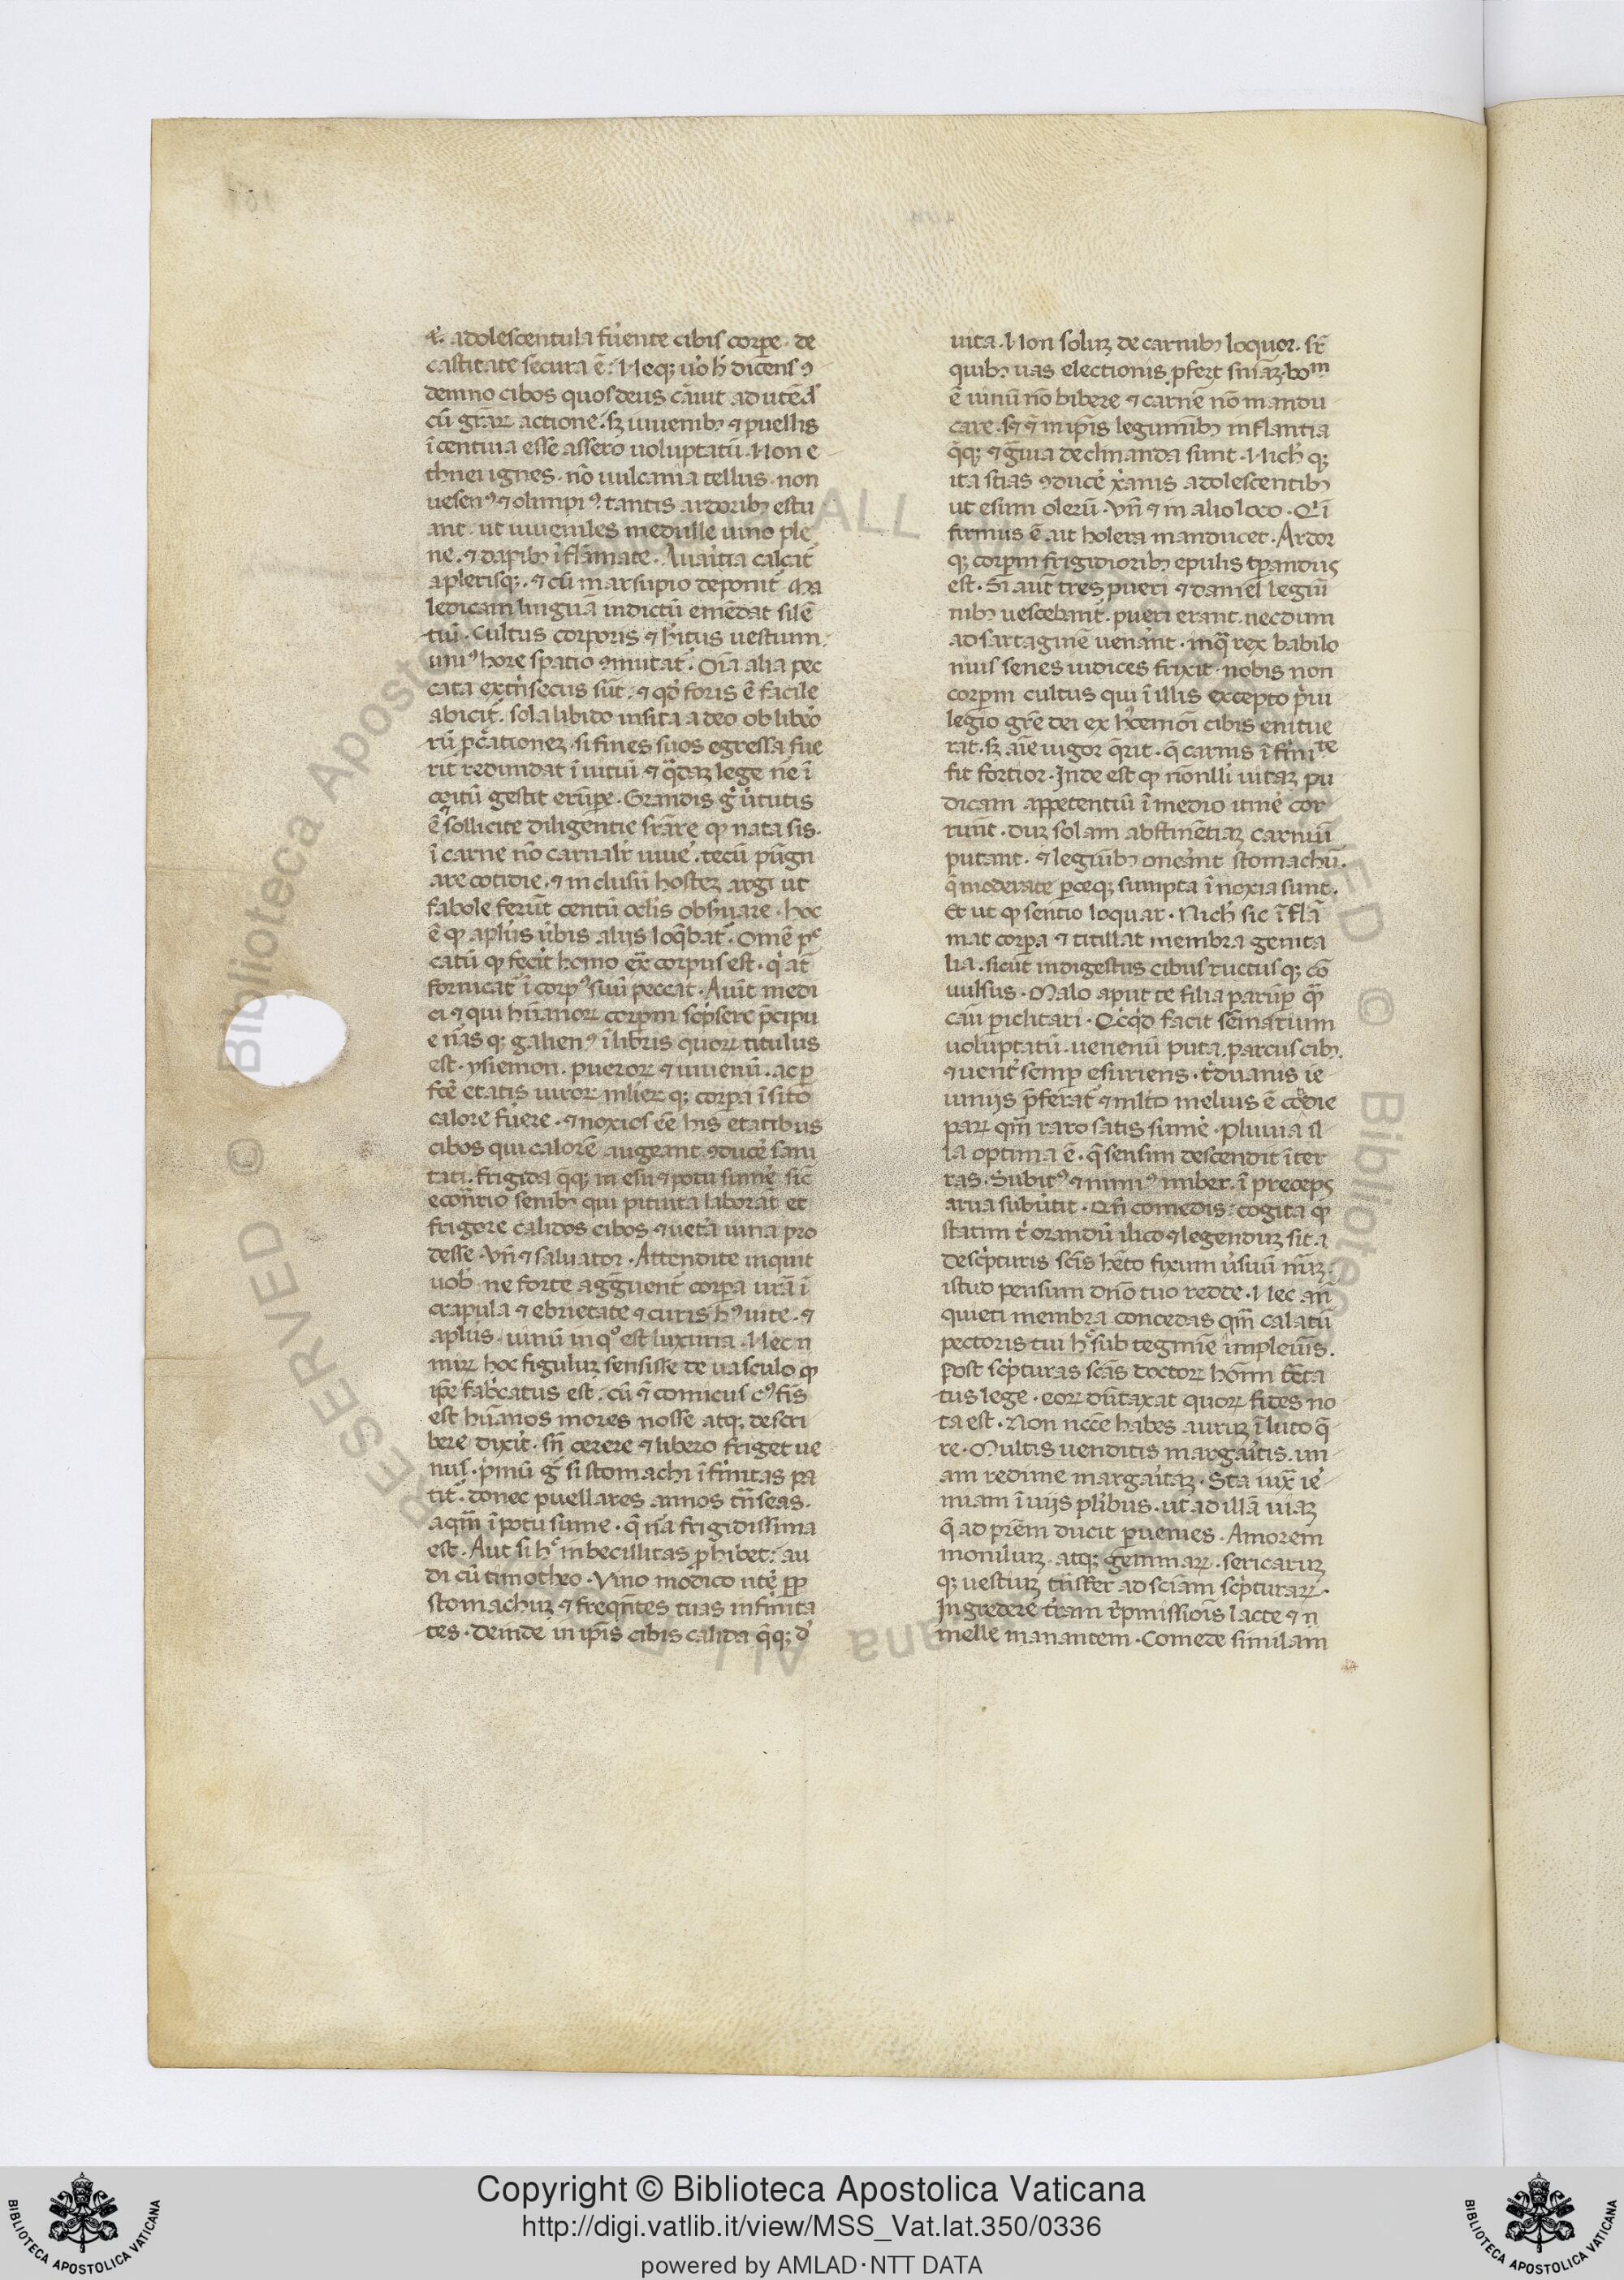 r̄. adolescentula fuente cibis corpe de
castitate secura ē. Neq; uo h̄ dicens ꝯ
demno cibos quos deus cāuit ad utēd᷑
cū grar̄ actione. sꝫ iuuenibꝫ ⁊ puellis
īcentiua esse assero uoluptatū. Non e
thnei ignes. nō uulcania tellus. non
uesenꝰ ⁊ olimpiꝰ tantis ardoribꝫ estu
ant. ut iuueniles medulle uino ple
ne. ⁊ dapibꝫ īflāmate. Auaitia calcat᷑
a plerisq;. ⁊ cū marsupio deponit᷑. Ma
ledicam linguā indictū emēdat silē
tiū. Cultus corporis ⁊ hitus uestium
uniꝰ hore spatio ꝯmutat᷑. Oīa alia pec
cata extn̄secus sūt. ⁊ qd̕ foris ē facile
abicit᷑. sola libido insita a deo ob libeo
rū pcationeꝫ. si fines suos egressa fue
rit redundat ī uitiū ⁊ qdaꝫ lege nē ī
coitū gestit erūpe. Grandis gͦ ututis
ē ⁊ sollicite diligentie srāre qͦ nata sis.
ī carne nō carnalr̄ uiue. tecū pūgn
are cotidie. ⁊ inclusū hosteꝫ argi ut
fabole ferūt centū oclis obsuare. hoc
ē qͦ aplus ubis alijs loq̄bat᷑. Omē pᶜ
catū qͦ fecit homo ex̄ corpus est. qͥ at̄
fornicat᷑ ī corpꝰ suū peccat. Aiūt medi
ci ⁊ qui hūanoꝝ corpm scpsere pcipu
e nās q; galienꝰ ī libris quoꝝ titulus
est. ysiemon. pueroꝝ ⁊ iuuenū. ac p
fcē etatis uiroꝝ mlieꝝ q; corpa īsito
calore fuere. ⁊ noxios eē his etatibus
cibos qui calorē augeant ꝯduce sani
tati. frigida q̄q; in esu ⁊ potu sume. sic̄
econtrio senibꝫ qui pituita laborāt et
frigore calidos cibos ⁊ ueta uina pro
desse. Vn̄ ⁊ saluator. Attendite inquit
uob̕ ne forte aggͣuent᷑ corpa urā ī
crapula ⁊ ebrietate ⁊ curis hꝰ uite. ⁊
aplus. uinū in qͦ est luxuria. Nec n
miꝝ hoc figuluꝫ sensisse de uasculo qͦ
ipē fabcatus est. cū ⁊ comicus cꝰ fīs
est hūanos mores nosse atq; descri
bere dixit. sn̄ cerere ⁊ libero friget ue
nus. pmū gͦ si stomachi īfitas pa
tit᷑. donec puellares annos tn̄seas.
aqm̄ ī potu sume. q̄ nͣa frigidissima
est. Aut si hͦ inbecillitas phibet: au
di cū timotheo. Vino modico ute ꝓp
stomachuꝫ ⁊ freqntes tuas infinita
tes. deinde in ipis cibis calida q̄q; d᷑
uita. Non soluꝫ de carnibꝫ loquor. sr̄
quibꝫ uas electionis pfert sniaꝫ. boᵐ
ē uinū nō bibere ⁊ carnē nō mandu
care. sꝫ ⁊ in ipis legumibꝫ inflantia
q̄q; ⁊ gͣuia declinanda sunt. Nich̕ q;
ita scias ꝯduce xanis adolescentibꝫ
ut esum olerū. Vn̄ ⁊ in alio loco. Q ī
firmus ē ait holera manducet. Ardor
q; corpm frigidioribꝫ epulis tpandus
est. Si aut̄ tres pueri ⁊ daniel legūi
nibꝫ uescebant᷑. pueri erant. necdum
ad sartaginē uenant. in qͣ rex babilo
nius senes iudices frixit. nobis non
corpm cultus qui ī illis excepto pui
legio grē dei ex hꝰcemoi cibis enitue
rat. sꝫ aīe uigor qrit᷑. q̄ carnis īfiniᵗᵉ
fit fortior. Inde est qͦ nōnlli uitaꝫ pu
dicam appetentiū ī medio itine cor
runt. duꝫ solam abstinētiaꝫ carniū
putant. ⁊ legiubꝫ oneant stomachū.
q̄ moderate pceq; sumpta īnoxia sunt.
Et ut qͦ sentio loquar. Nich̕ sic īflā
mat corpa ⁊ titillat membra genita
lia. sicut indigestus cibus ructus q; cō
uulsus. Malo aput te filia parūp qͣ
cau piclitari. Qcqd facit semarium
uoluptatū. uenenū puta. parcus cibꝫ.
⁊ uent᷑ semp esuriens. tͥduanis ie
iunijs pferat᷑ ⁊ mlto melius ē codie
paꝝ qm̄ raro satis sume. Pluuia il
la optima ē. q̄ sensim descendit ī ter
ras. Subitꝰ ⁊ nimiꝰ imber. ī preceps
arua subutit. Qn̄ comedis. cogita qͦ
statim t̕ orandū ilico ⁊ legenduꝫ sit. a
descpturis scis hēto fixum usuū nr̄uꝫ.
istud pensum dn̄o tuo redde. Nec an̄
quieti membra concedas qm̄ calatū
pectoris tui hͦ sub tegmie impleuis.
Post scpturas scas doctoꝝ homi tcta
tus lege. eoꝝ dūtaxat quoꝝ fides no
ta est. Non nccē habes auruꝫ ī luto q̄
re. Multis uenditis margaitis. un
am redime margaitaꝫ. Sta iux̄ ie
miam ī uijs plibus. ut ad illā uiaꝫ
q̄ ad prēm ducit puenies. Amorem
moniluꝫ. atq; gemmaꝝ. sericaruꝫ
q; uestiuꝫ tn̄sfer ad sciam scpturaꝝ.
Ingredere tram rpmissiois lacte ⁊ n
melle manantem. Comede similam
Copyright © Biblioteca Apostolica Vaticana
http://digi.vatlib.it/view/MSS_Vat.lat.350/0336
powered by AMLAD·NTT DATA